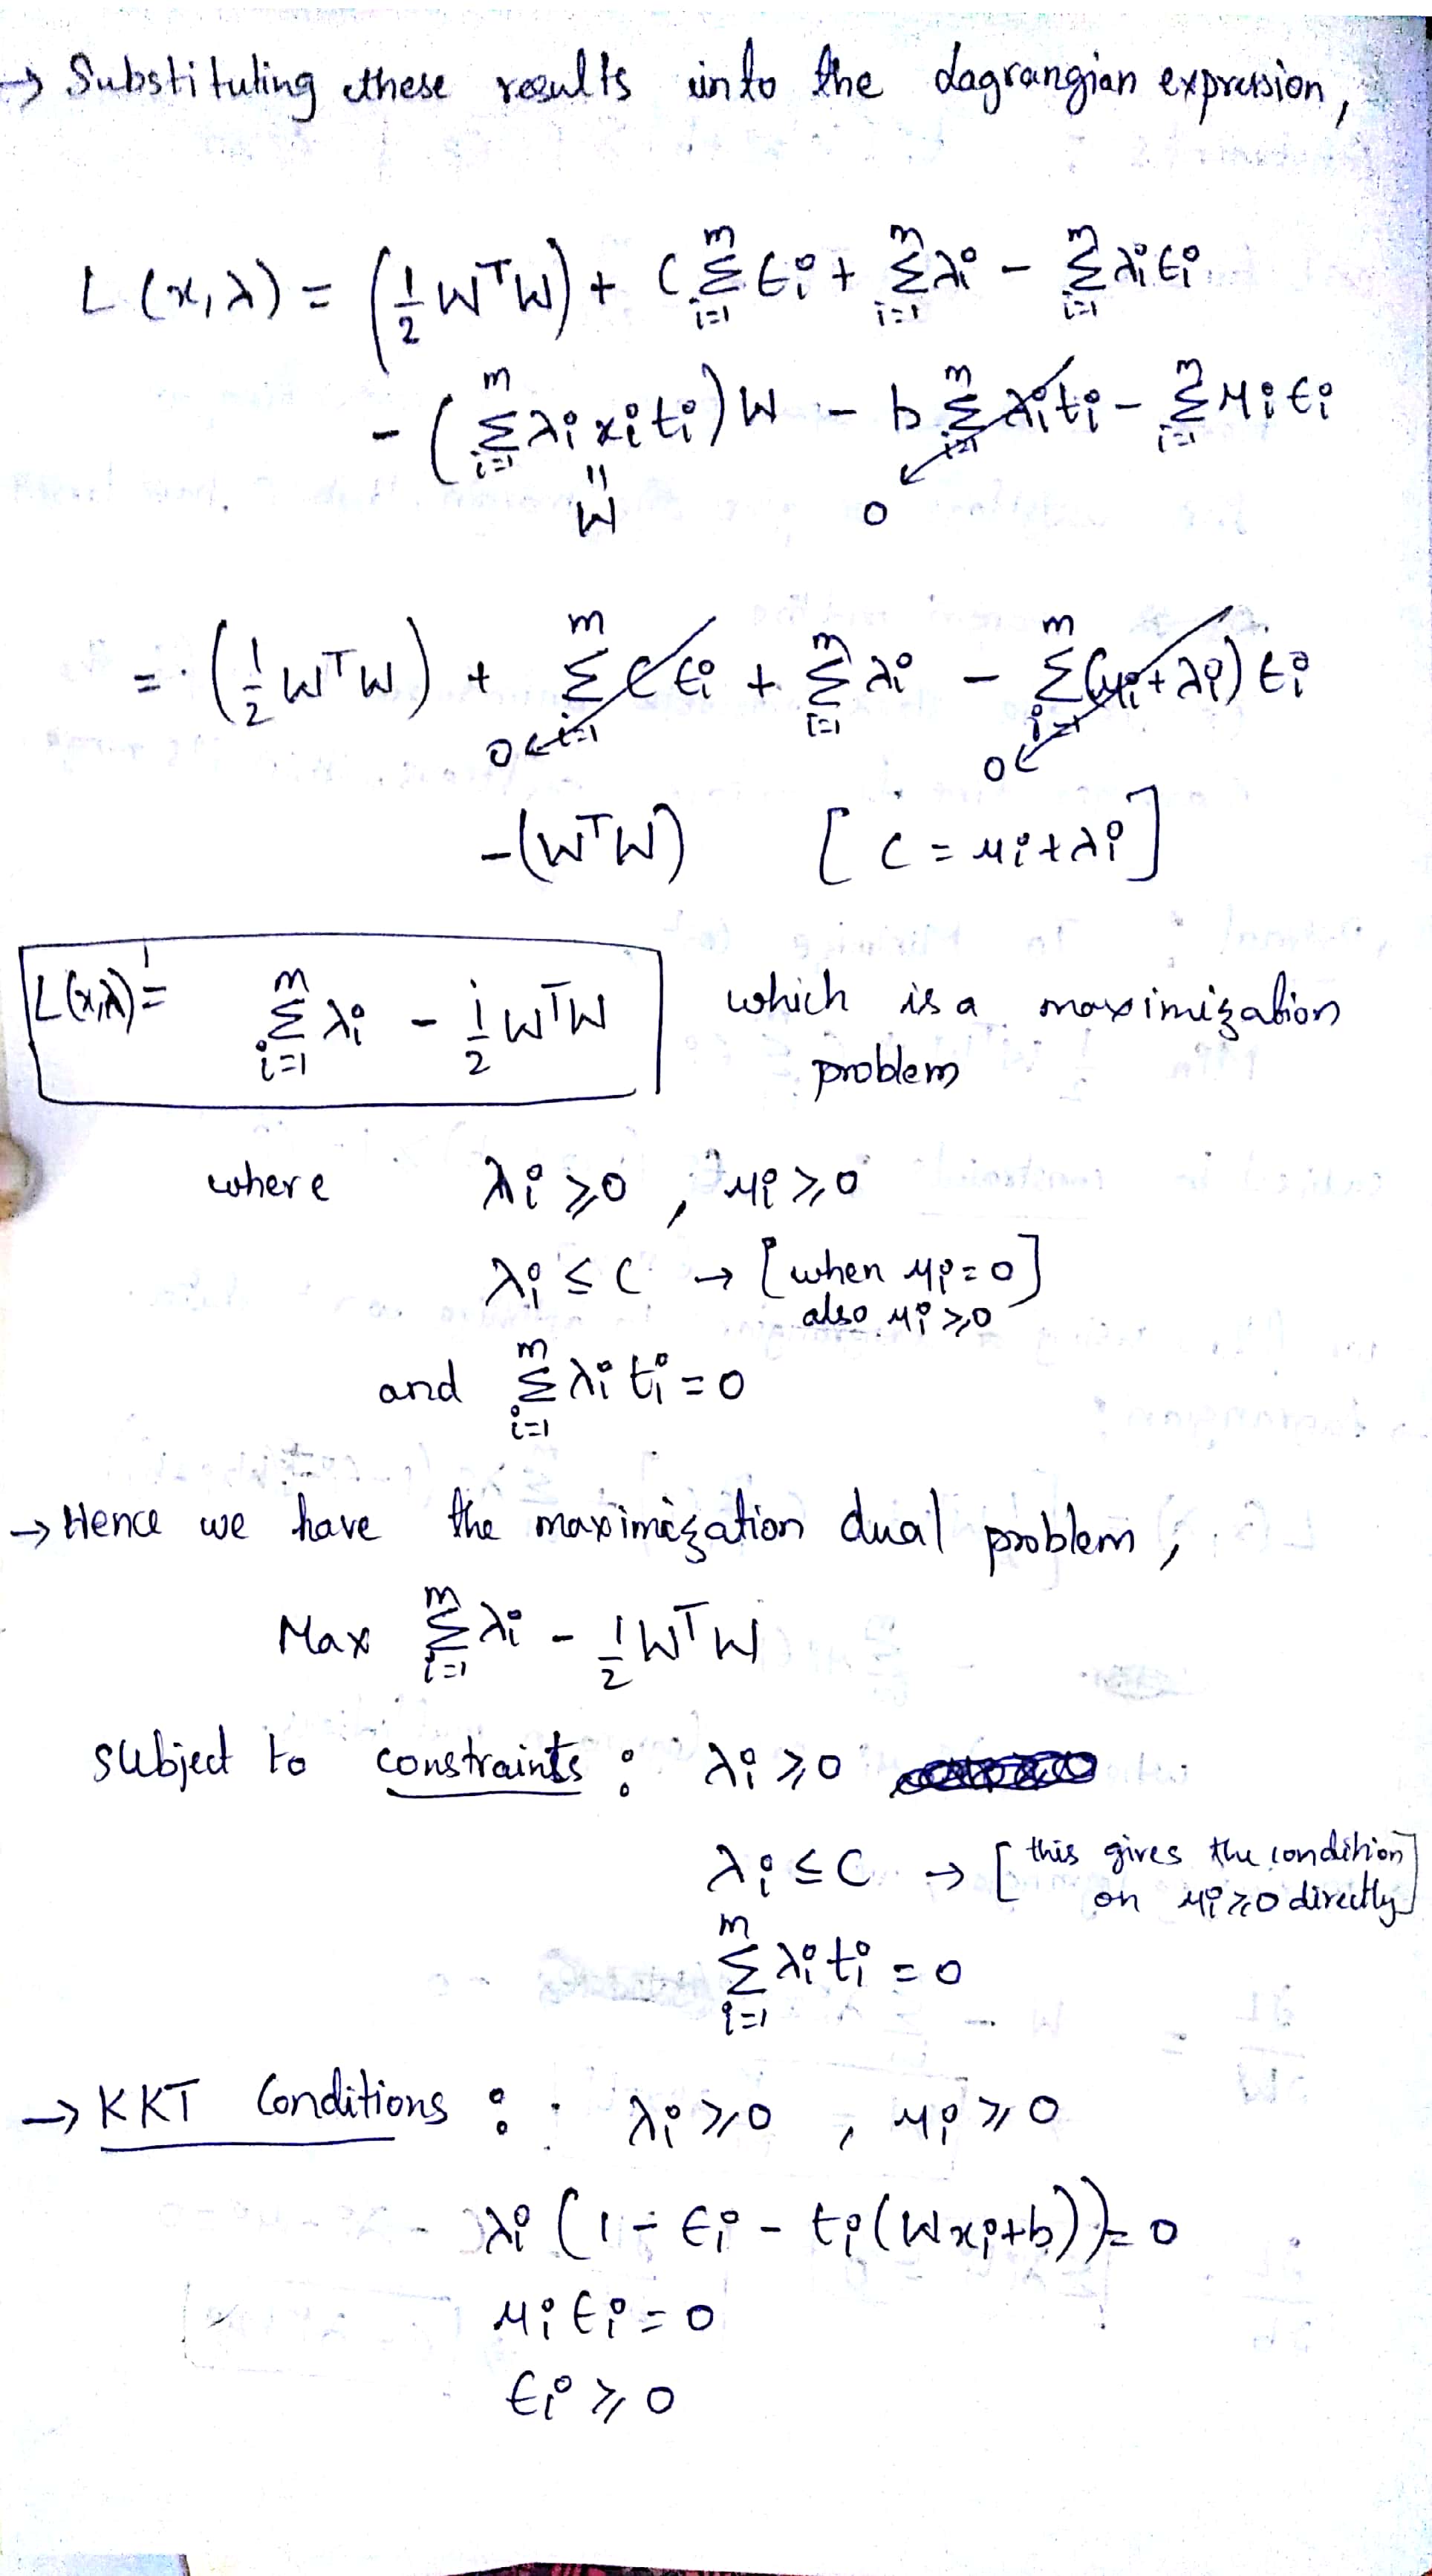 → Substituting these results into the Lagrangian expression,
L(x,λ) = (1/2 WᵀW) + C Σ_{i=1}^{m} ϵi + Σ_{i=1}^{m} λi - Σ_{i=1}^{m} λi ϵi
- (Σ_{i=1}^{m} λi xi ti) W - b Σ_{i=1}^{m} λi ti - Σ_{i=1}^{m} μi ϵi
|| W 0
= (1/2 WᵀW) + Σ_{i=1}^{m} C ϵi + Σ_{i=1}^{m} λi - Σ_{i=1}^{m} (μi + λi) ϵi
0 0
-(WᵀW) [C = μi + λi]
L(x,λ) = Σ_{i=1}^{m} λi - 1/2 WᵀW which is a maximization
problem
where λi ≥ 0 , μi ≥ 0
λi ≤ C → [when μi = 0]
also μi ≥ 0
and Σ_{i=1}^{m} λi ti = 0
→ Hence we have the maximization dual problem,
Max Σ_{i=1}^{m} λi - 1/2 WᵀW
subject to constraints : λi ≥ 0
λi ≤ C → [this gives the condition
on μi ≥ 0 directly]
Σ_{i=1}^{m} λi ti = 0
→ KKT Conditions : λi ≥ 0 , μi ≥ 0
λi (1 - ϵi - ti(Wxi+b)) = 0
μi ϵi = 0
ϵi ≥ 0